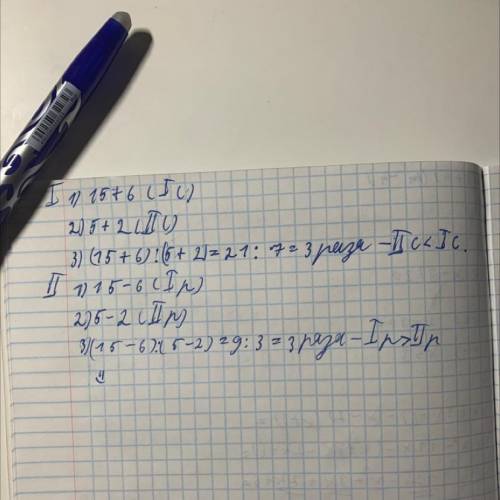 I 1) 15+6 (I с)
2) 5+2 (II с)
3) (15+6):(5+2)=21:7=3 раза – II с < I с.
II 1) 15-6 (I р)
2) 5-2 (II р)
3) (15-6):(5-2)=9:3=3 раза – I р > II р